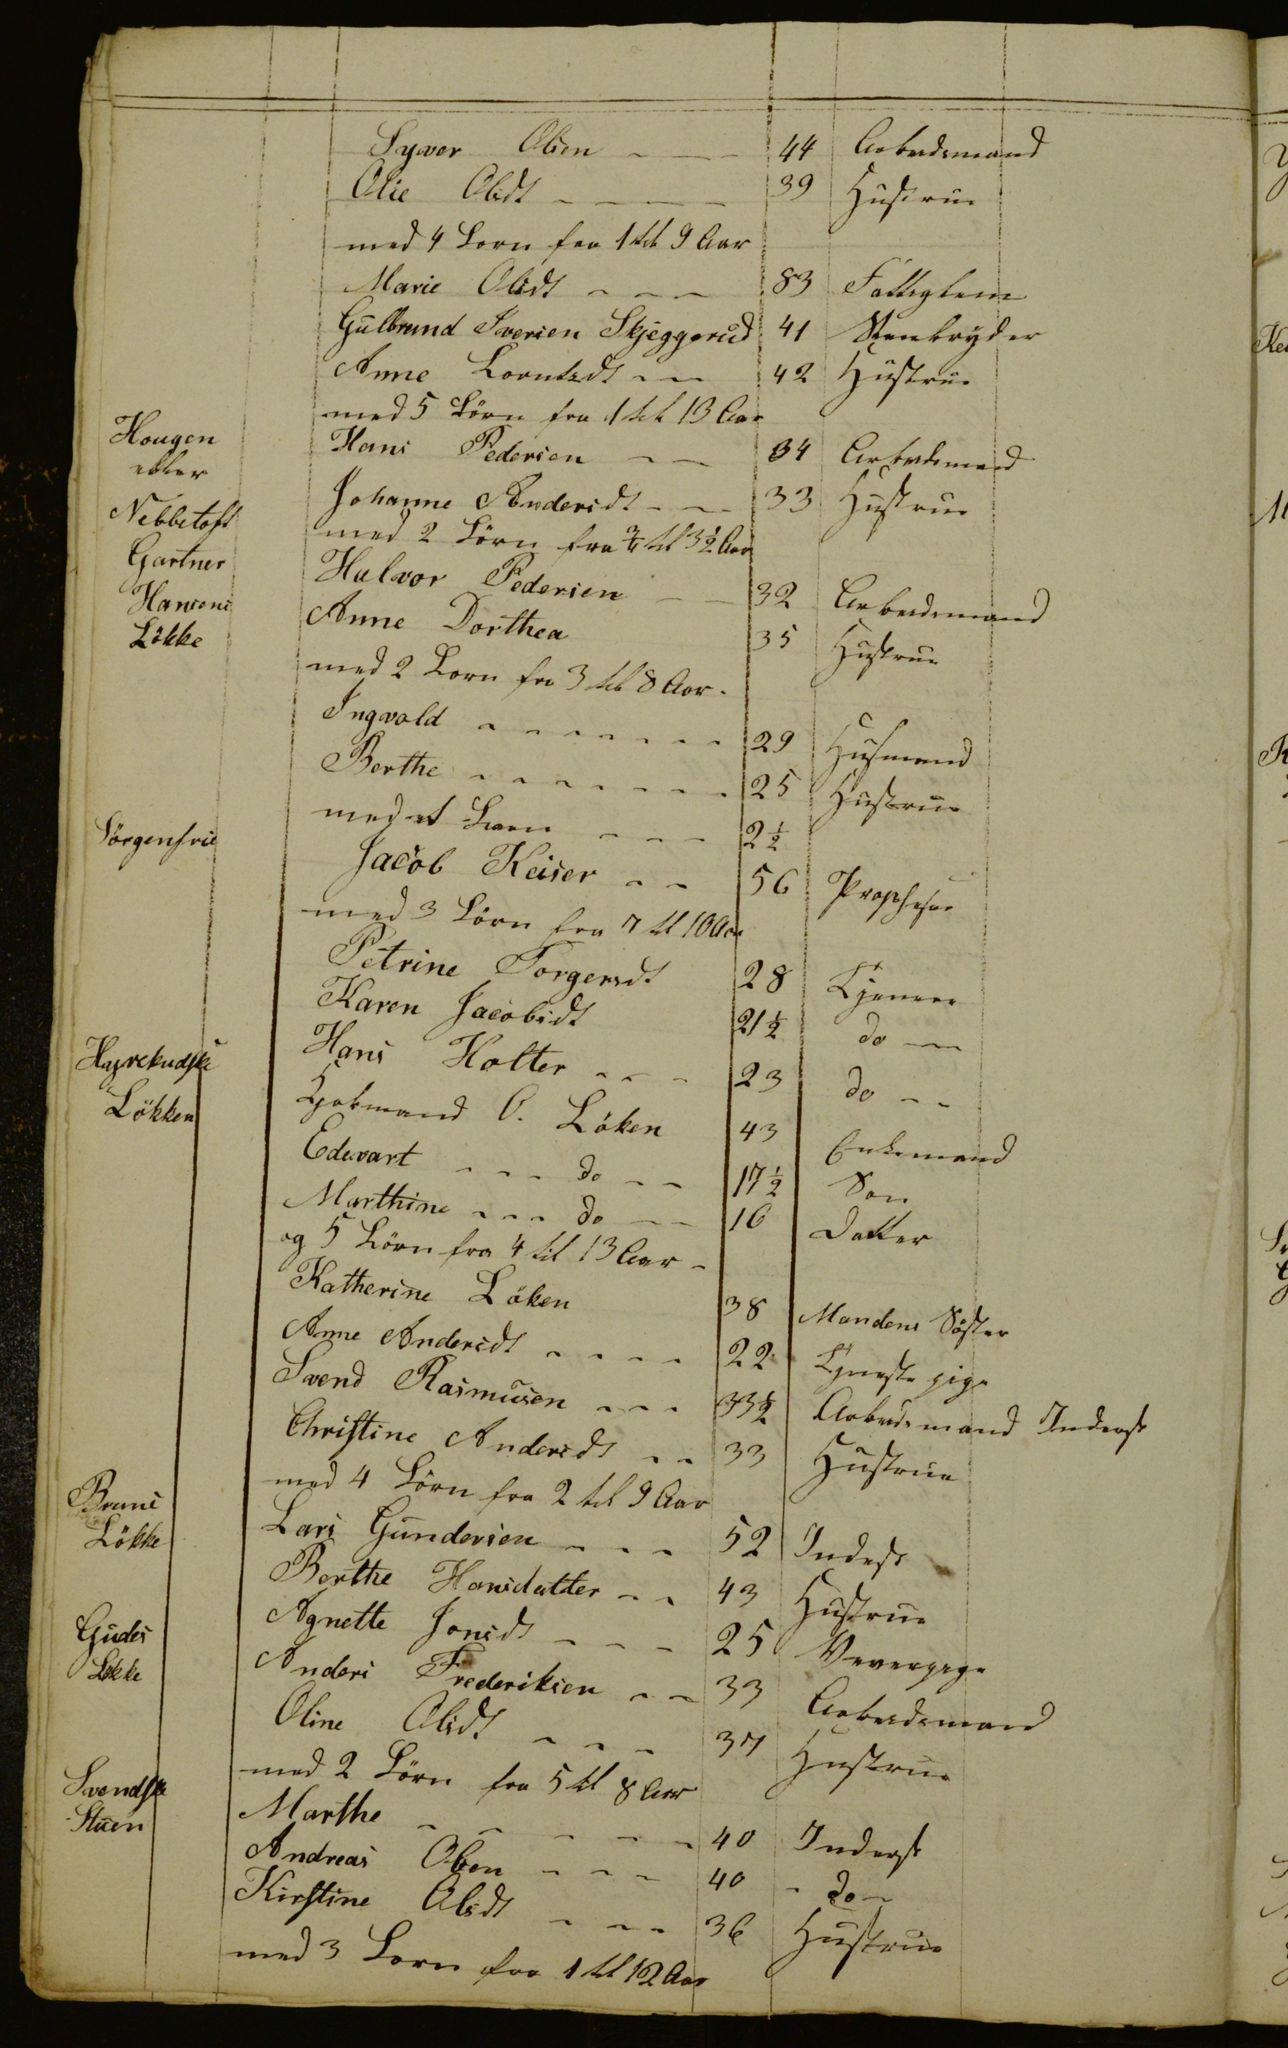 Syver Olsen - - - 44 Arbeidsmand
Olie Olsdt - - - - 39 Hustrue
med 4 Børn fra 1 til 9 Aar
Marie Olsdt - - - 83 Fattiglem
Gulbrand Iversen Skjeggerud 41 Stenbryder
Anne Lorntsdt - - 42 Hustrue
med 5 Börn fra 1 til 13 Aar
Hougen Hans Pedersen - - 34 Arbeidsmand
eller
Nebbetoft Johanne Andersdt - - - 33 Hustrue
med 2 Börn fra 3/4 til 3 1/2 Aar
Gartner Halvor Pedersen - - 32 Arbeidsmand
Hansens Anne Dorthea 35 Hustrue
Lökke
med 2 Børn fra 3 til 8 Aar.
Ingvald - - - - - - - 29 Husmand
Berthe - - - - - - - 25 Hustrue
med et Barn - - - 2 1/2
Sörgenfrie Jacob Keiser - - 56 Prophesor
med 3 Börn fra 7 til 10 Aar
Petrine Torgersdt 28 Tjenere
Karen Jacobsdt 21 1/2 do -
Hans Holter - - - 23 do - -
Lökken O. Löken 43 Enkemand
Edevart - - - do - - 17 1/2 Søn
Marthine - - - do - - 16 Datter
og 5 Börn fra 4 til 13 Aar -
Katherine Löken 38 Mandens Söster
Anne Andersdt - - - - 22 Tjenste pige
Svend Rasmusen - - - 33 1/2 Arbeidsmand Inderst
Christine Andersdt - - 33 Hustrue
med 4 Börn fra 2 til 9 Aar
Bruns Lars Gundersen - - - 52 Inderst
Lökke
Berthe Hansdatter - - 43 Hustrue
Agnette Jonsdt - - - 25 Veverpige
Gudes Anders Frederiksen - - 33 Arbeidsmand
Løkke
Oline Olsdt - - - 37 Hustrue
med 2 Börn fra 5 til 8 Aar
Svendske Marthe - - - - - 40 Inderst
Stuen
Andreas Olsen - - - 40 - do -
Kirstine Olsdt - - - 36 Hustrue
med 3 Børn fra 1 til 12 Aar